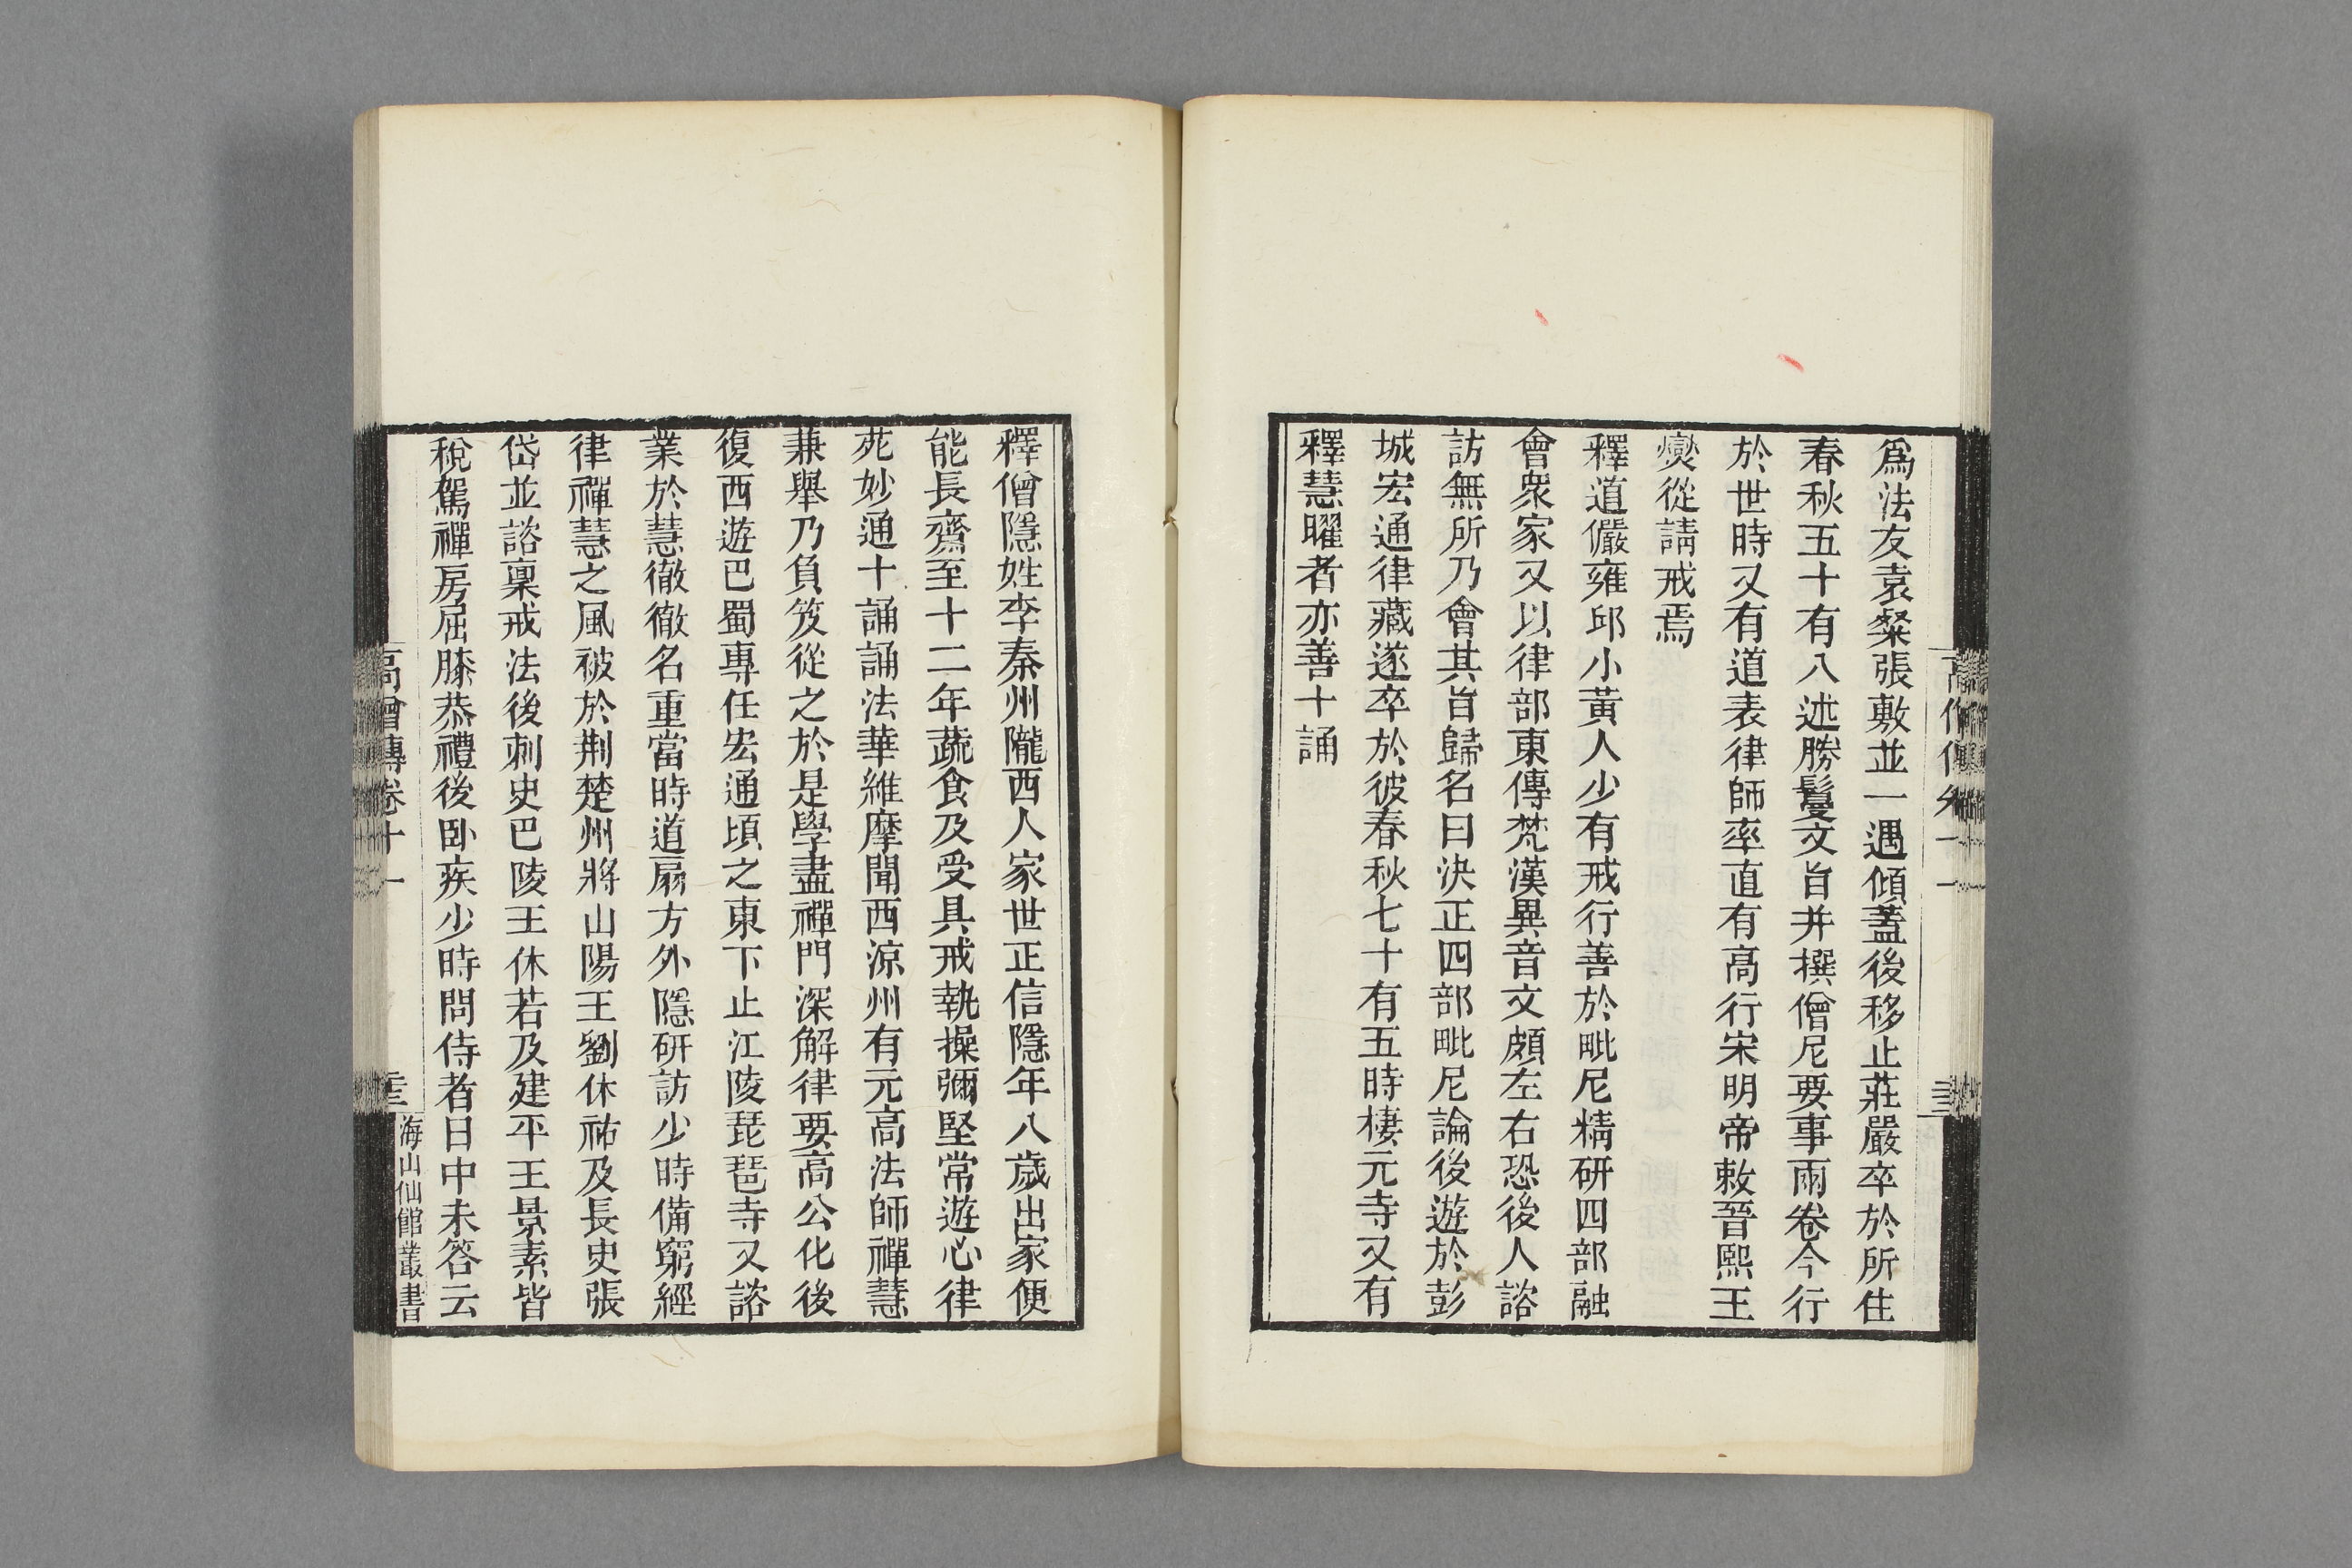 爲法友袁粲張敷並一遇傾蓋後移止莊嚴卒於所住
春秋五十有八述勝鬘文旨并撰僧尼要事兩卷今行
於世時又有道表律師率直有高行宋明帝敕晉熙王
燮從請戒焉
釋道儼雍邱小黃人少有戒行善於毗尼精研四部融
會衆家又以律部東傳梵漢異音文頗左右恐後人諮
訪無所乃會其旨歸名曰決正四部毗尼論後遊於彭
城宏通律藏遂卒於彼春秋七十有五時棲元寺又有
釋慧曜者亦善十誦
釋僧隱姓李秦州隴西人家世正信隱年八歲出家便
能長齋至十二年蔬食及受具戒執操彌堅常遊心律
苑妙通十誦誦法華維摩聞西涼州有元高法師禪慧
兼舉乃負笈從之於是學盡禪門深解律要高公化後
復西遊巴蜀專任宏通頃之東下止江陵琵琶寺又諮
業於慧徹徹名重當時道扇方外隱研訪少時備窮經
律禪慧之風被於荆楚州將山陽王劉休祐及長史張
岱並諮稟戒法後刺史巴陵王休若及建平王景素皆
稅駕禪房屈膝恭禮後卧疾少時問侍者日中未答云
高僧傳卷十一
海山仙館叢書